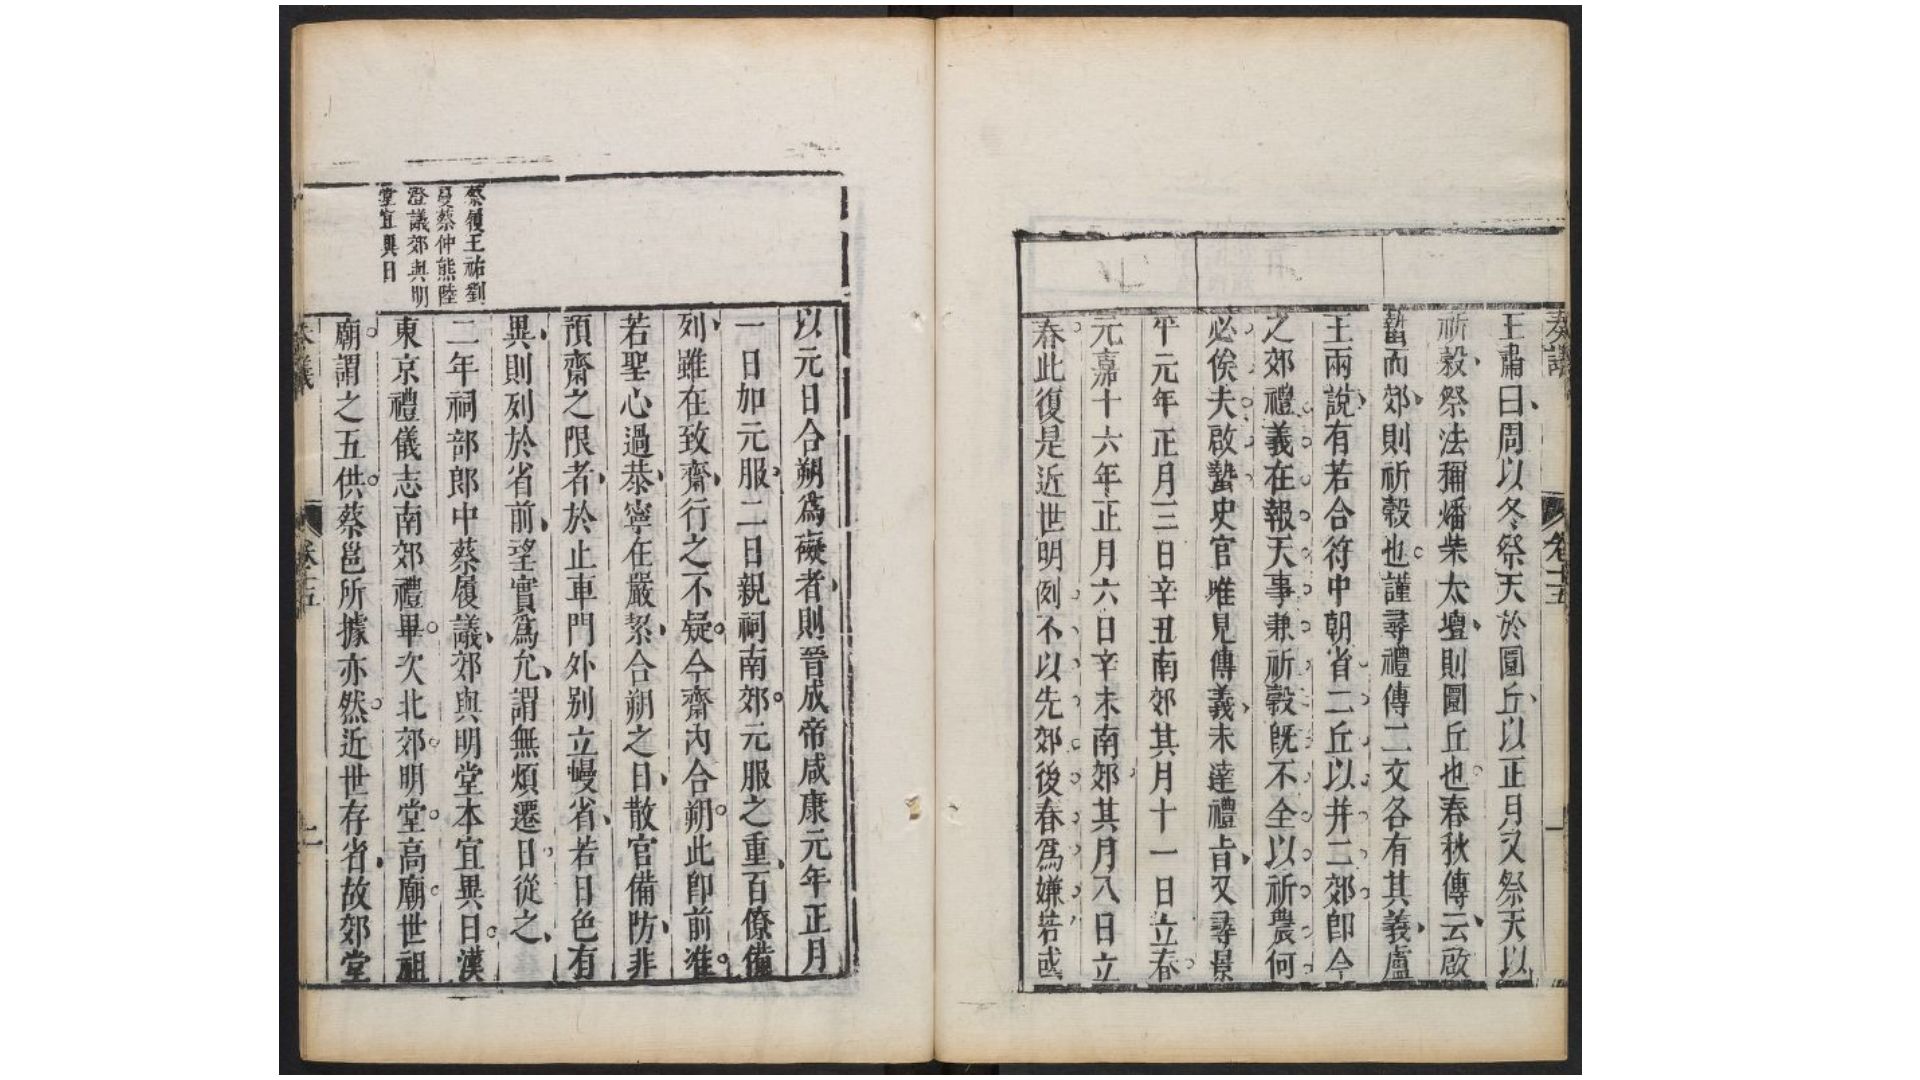 奏議
卷十五
一
王肅曰周以冬祭天於圜丘以正月又祭天以
祈穀祭法稱燔柴太壇則圜丘也春秋傳云啟
蟄而郊則祈穀也謹尋禮傳二文各有其義盧
王兩說有若合符中朝省二丘以并二郊即今
之郊禮義在報天事兼祈穀旣不全以祈農何
必俟夫啟蟄史官唯見傳義未達禮旨又尋景
平元年正月三日辛丑南郊其月十一日立春
元嘉十六年正月六日辛未南郊其月八日立
春此復是近世明例不以先郊後春爲嫌若或
以元日合朔爲礙者則晉成帝咸康元年正月
一日加元服二日親祠南郊元服之重百僚備
列雖在致齋行之不疑今齋內合朔此卽前准
若聖心過恭寧在嚴絜合朔之日散官備防非
預齋之限者於止車門外別立幔省若日色有
異則列於省前望實爲允謂無煩遷日從之
蔡履王祐劉
蔓蔡仲熊陸
澄議郊與明
堂宜異日
二年祠部郎中蔡履議郊與明堂本宜異日漢
東京禮儀志南郊禮畢次北郊明堂高廟世祖
廟謂之五供蔡邕所據亦然近世存省故郊堂
卷十五
二